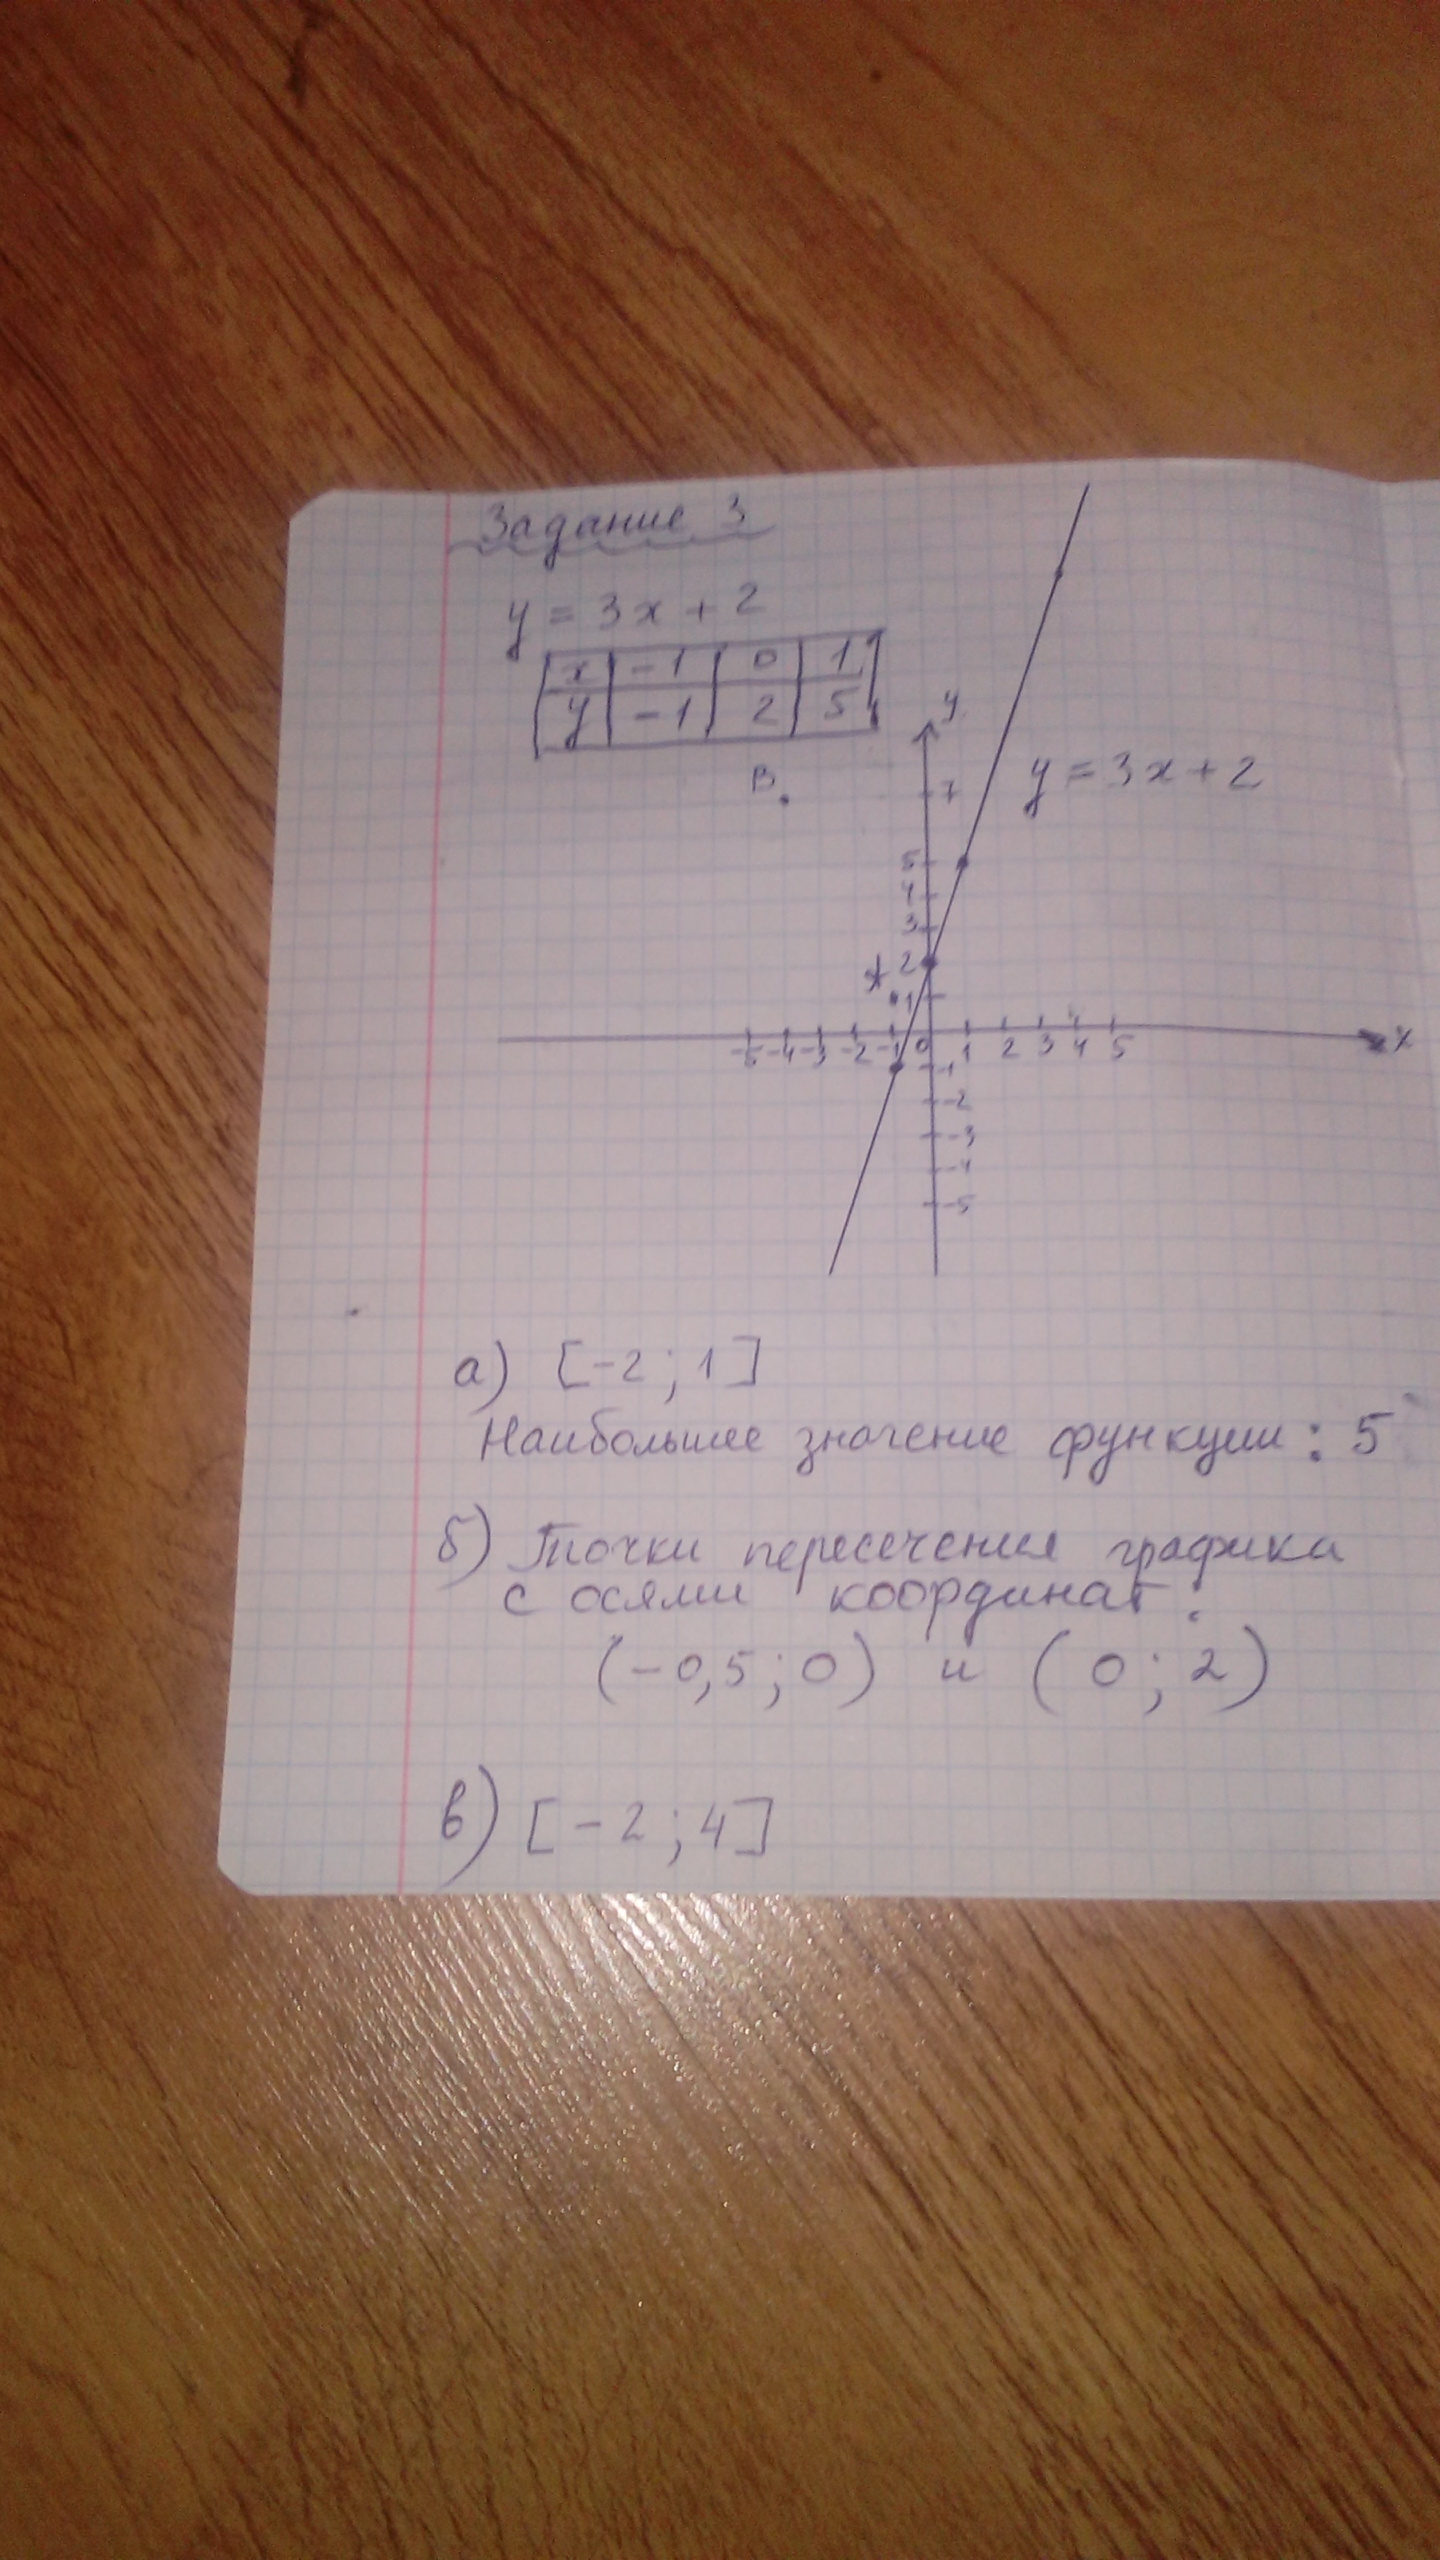 Задание 3
y = 3x + 2
x -1 0 1
y -1 2 5
y
B
7
y = 3x + 2
5
4
3
2
1
-5 -4 -3 -2 -1 0 1 2 3 4 5 x
-1
-2
-3
-4
-5
а) [-2; 1]
Наибольшее значение функции: 5
б) Точки пересечения графика
с осями координат:
(-0,5; 0) и (0; 2)
в) [-2; 4]